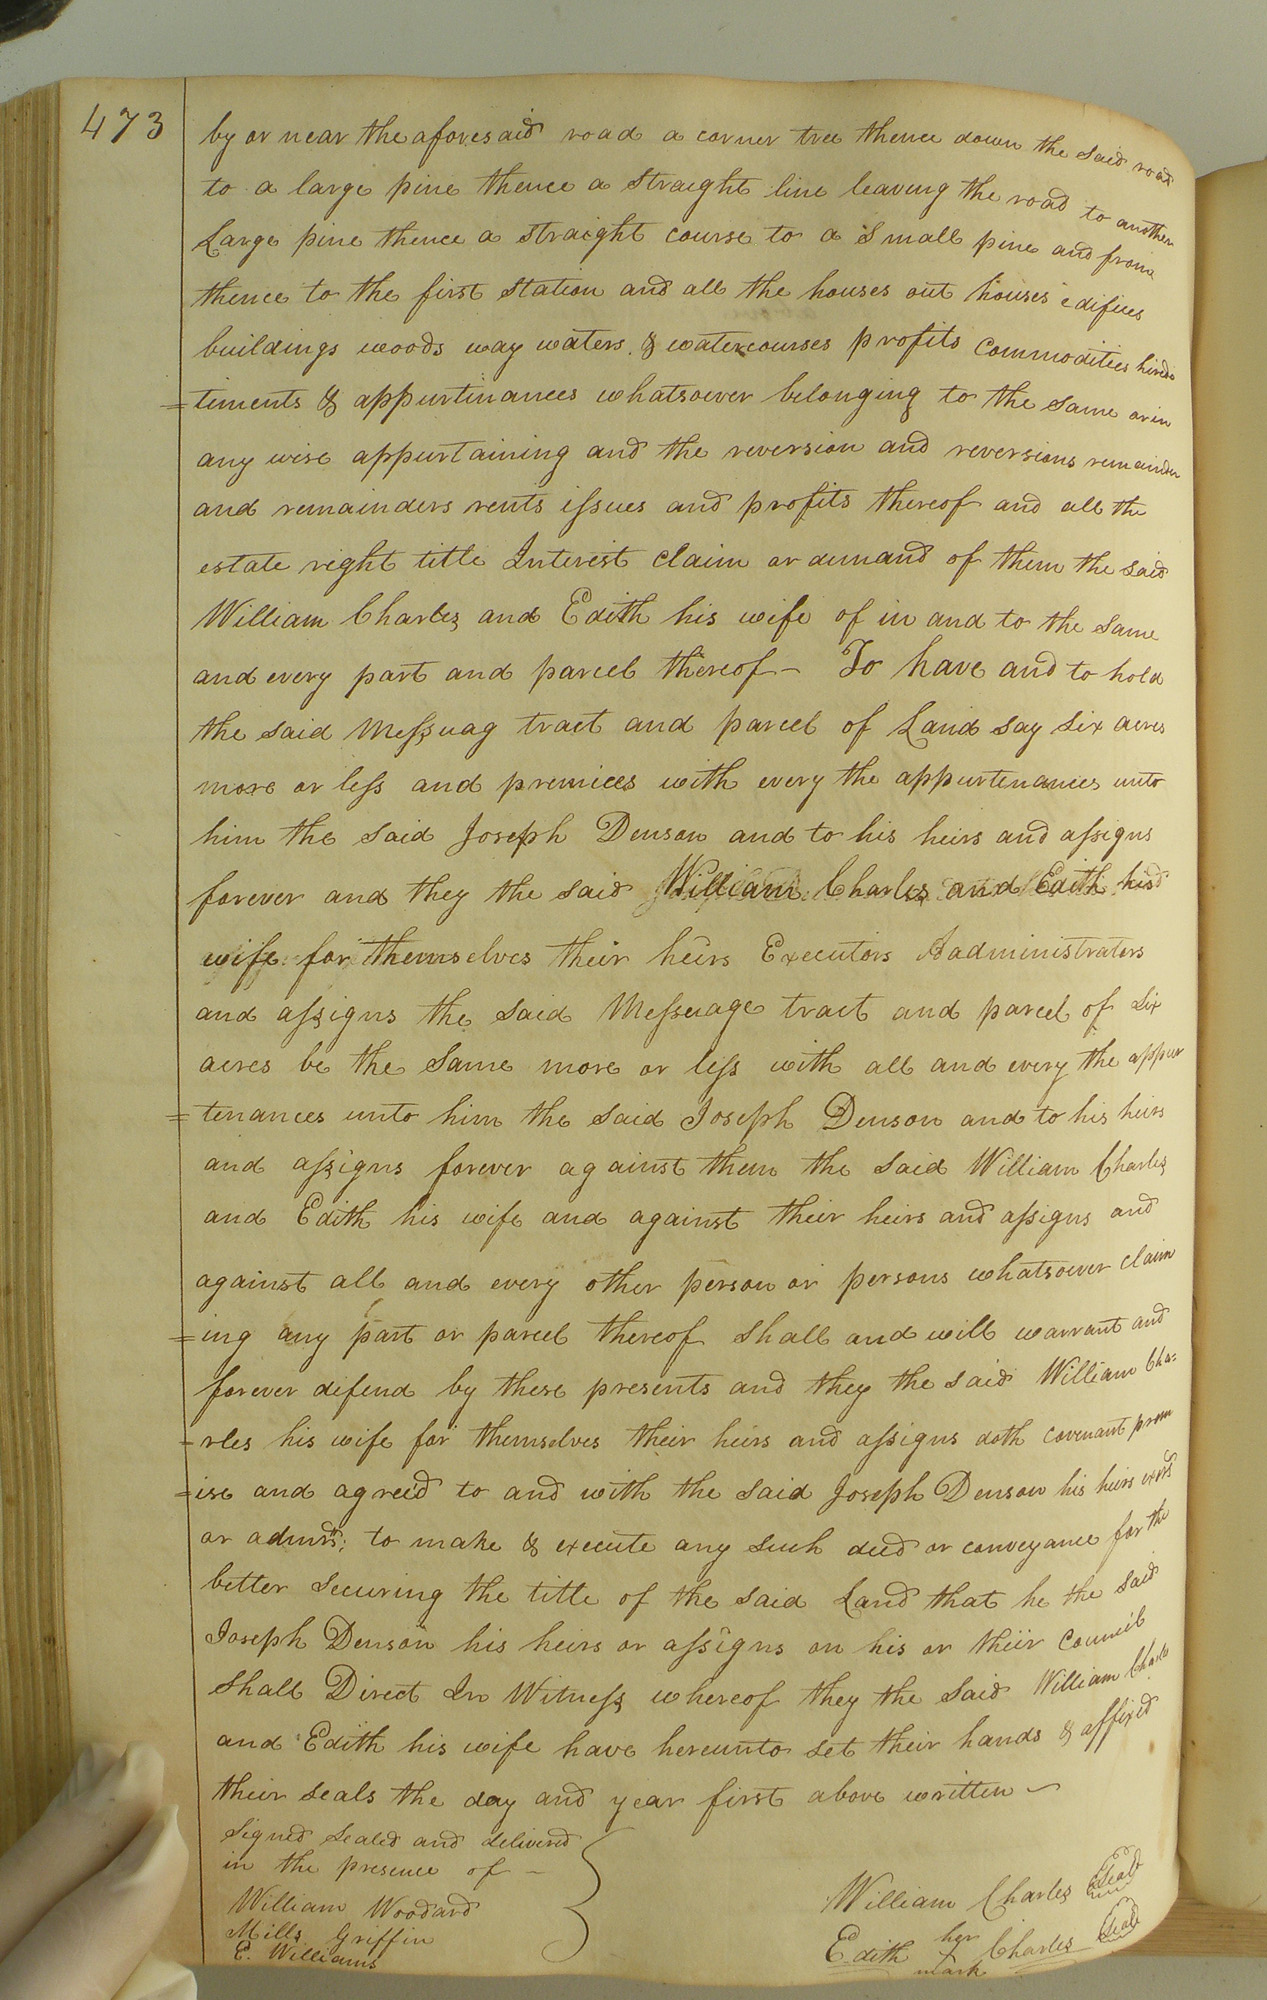 473
by or near the aforesaid road a corner tree thence down the said road
to a large pine thence a straight line leaving the road to another
Large pine thence a straight course to a small pine and from
thence to the first station and all the houses out houses edifices
buildings woods way waters & watercourses profits commodities heredi
=timents & appurtinances whatsoever belonging to the same or in
any wise appurtaining and the reversion and reversions remainder
and remainders rents issues and profits thereof and all the
estate right title Interest claim or demand of them the said
William Charles and Edith his wife of in and to the same
and every part and parcel thereof - To have and to hold
the said Messuag tract and parcel of Land say six acres
more or less and premices with every the appurtenances unto
him the said Joseph Denson and to his heirs and assigns
forever and they the said William Charles and Edith his
wife for themselves their heirs Executors Aadministrators
and assigns the said Messuage tract and parcel of six
acres be the same more or less with all and every the appur
=tenances unto him the said Joseph Denson and to his heirs
and assigns forever against them the said William Charles
and Edith his wife and against their heirs and assigns and
against all and every other person or persons whatsoever claim
=ing any part or parcel thereof shall and will warrant and
forever defend by these presents and they the said William Cha=
=rles his wife for themselves their heirs and assigns doth covenant prom
=ise and agree'd to and with the said Joseph Denson his heirs exors
or admrs; to make & execute any such deed or conveyance for the
better securing the title of the said Land that he the said
Joseph Denson his heirs or assigns on his or their Council
shall Direct In Witness whereof they the said William Charles
and Edith his wife have hereunto set their hands & affixed
their seals the day and year first above written -
Signed sealed and delivered
in the presence of -
William Woodard
Mills Griffin
E. Williams
William Charles Seal
her
Edith + Charles Seal
mark